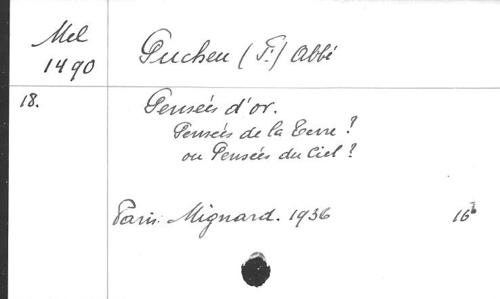 Mel
1490
Pucheu (F.) Abbé
18.
Pensées d'or.
Pensées de la Terre ?
ou Pensées du Ciel ?
Paris. Mignard. 1936
16°